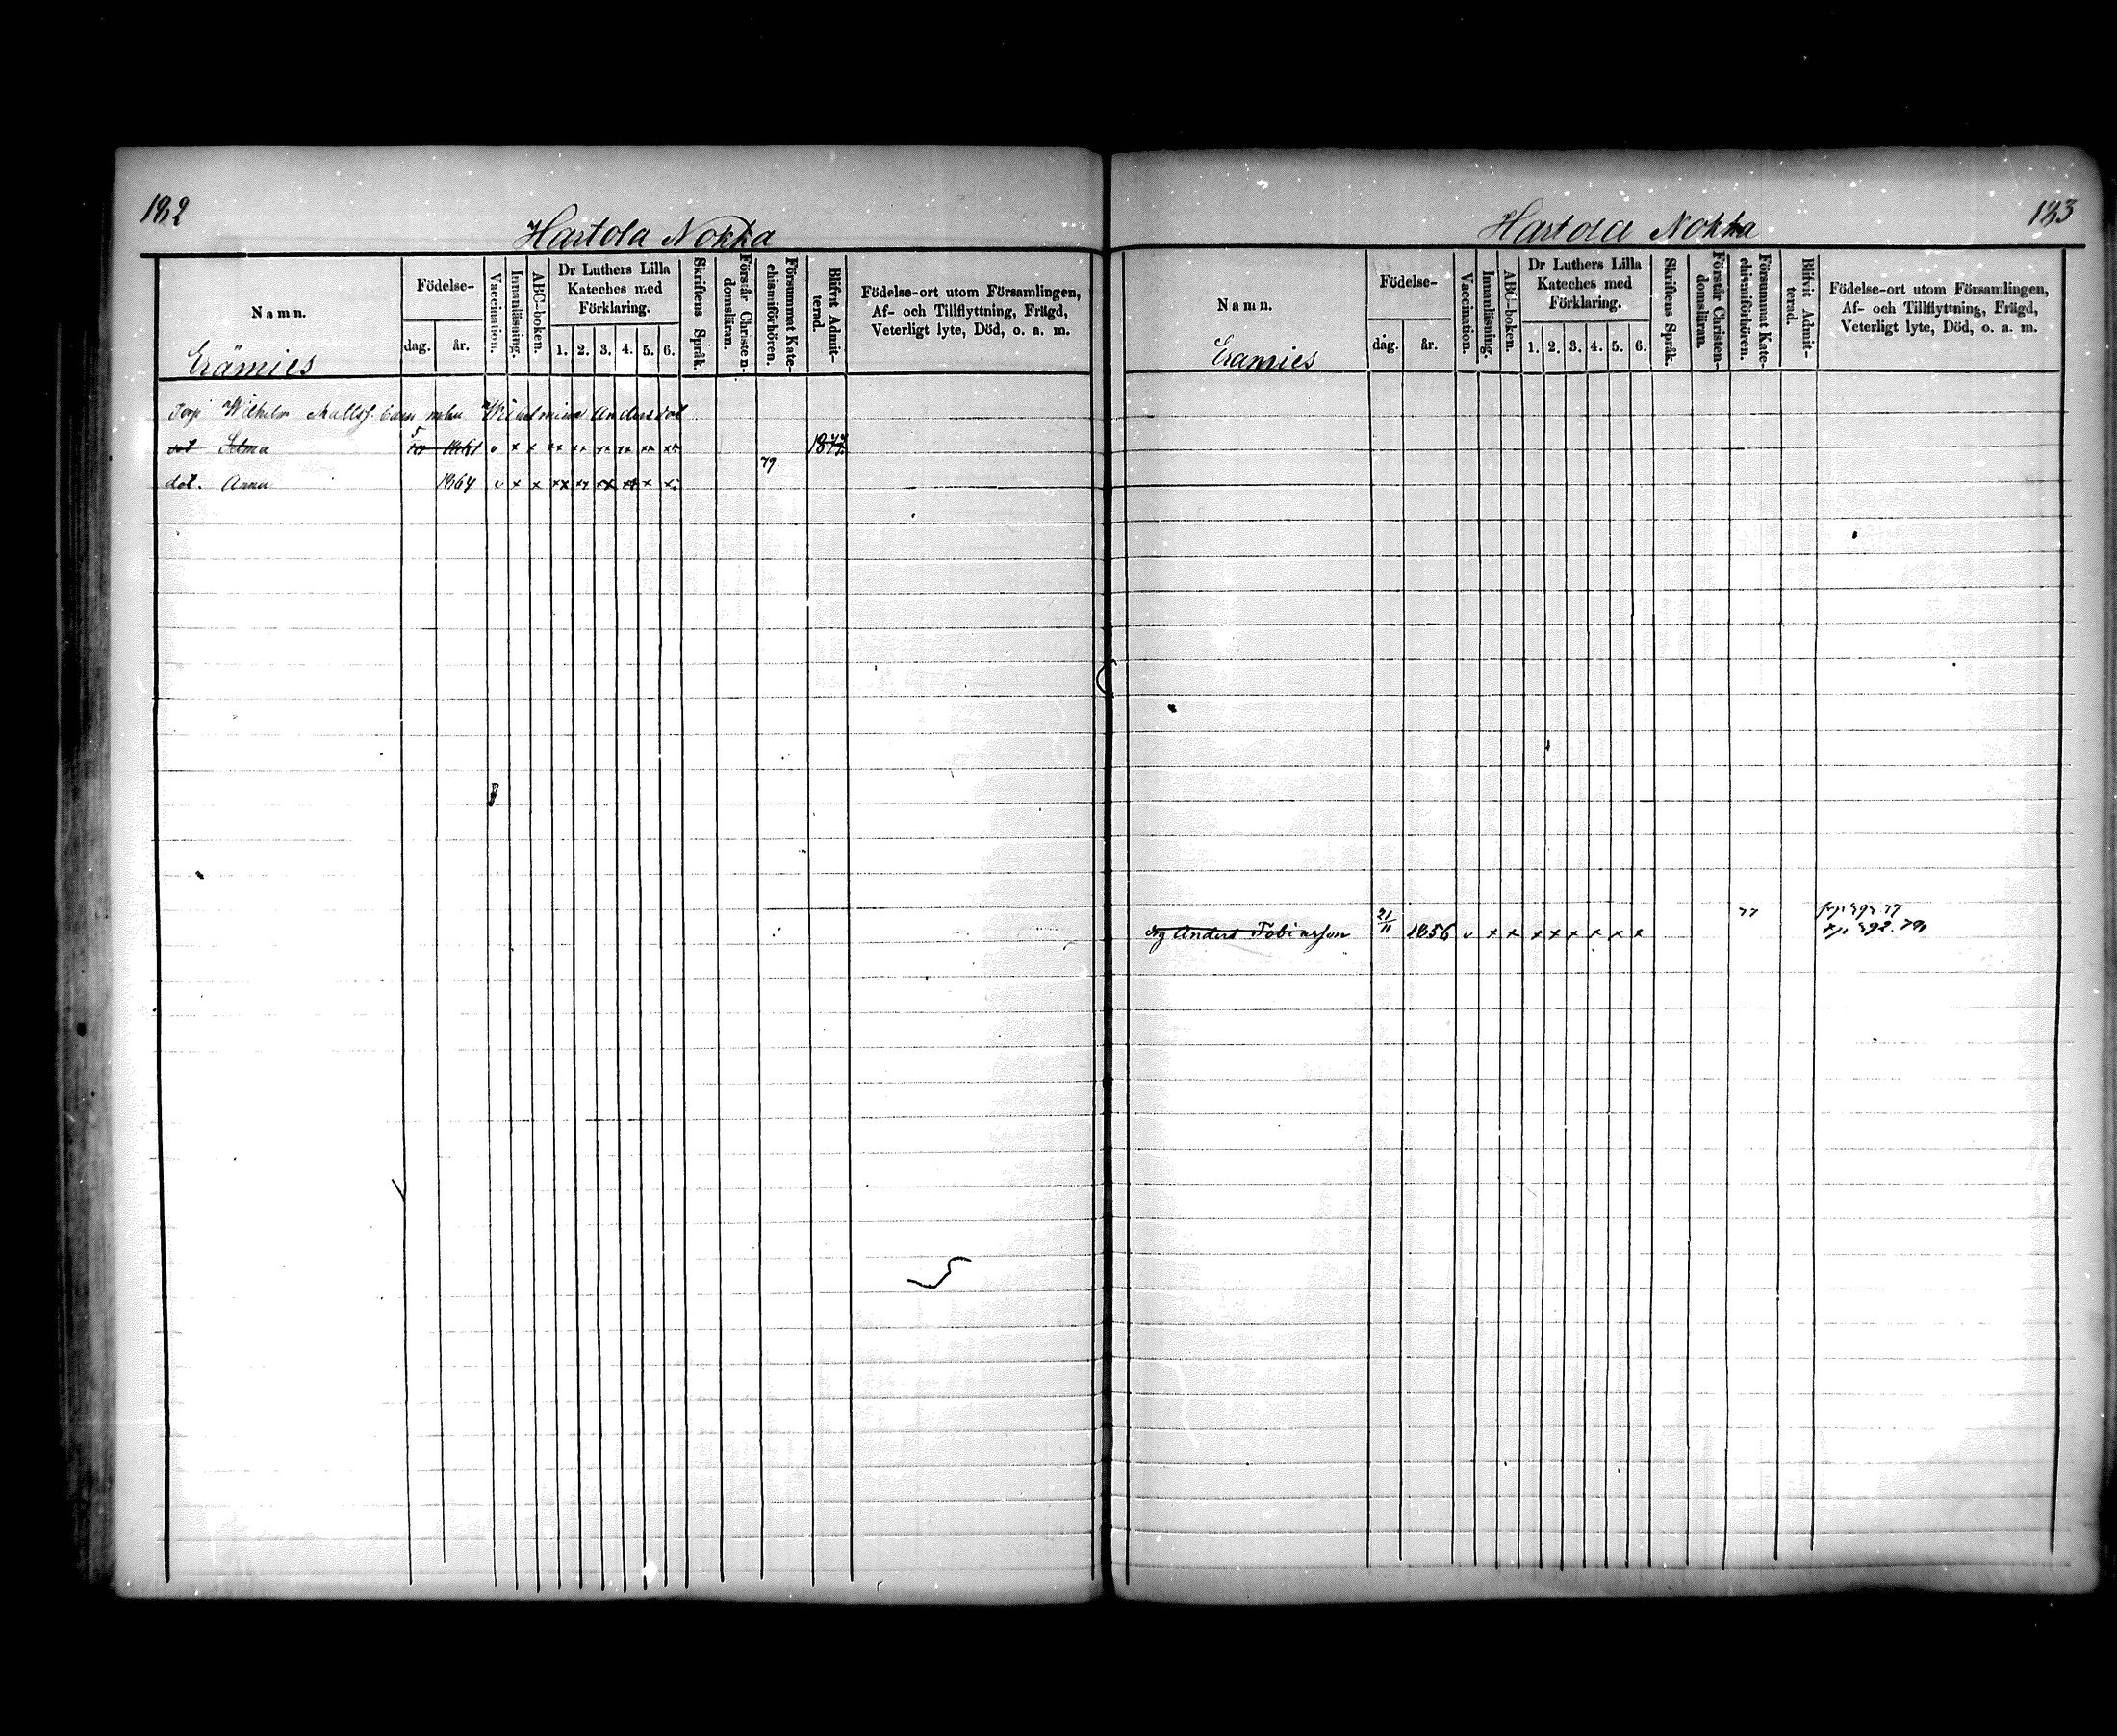 182
Hartola Nokka
Namn.
Födelse-
dag.
år.
Vaccination.
Innanläsning.
ABC-boken.
Dr Luthers Lilla
Kateches med
Förklaring.
1. 2. 3. 4. 5. 6.
Skriftens Språk.
Förstår Christen-
domsläran.
Försummat Kate-
chismiförhören.
Blifvit Admit-
terad.
Födelse-ort utom Församlingen,
Af- och Tillflyttning, Frägd,
Veterligt lyte, Död, o. a. m.
Erämies
Torp Wilhelm Mattss. barn Wilhelmina Andersdot
dot Selma 1861 v x x xx xx xx xx xx xx 1877
79
dot. Anna 1864 v x x xx xx xx xx x x
183
Hartola Nokka
Namn.
Födelse-
dag.
år.
Vaccination.
Innanläsning.
ABC-boken.
Dr Luthers Lilla
Kateches med
Förklaring.
1. 2. 3. 4. 5. 6.
Skriftens Språk.
Förstår Christen-
domsläran.
Försummat Kate-
chismiförhören.
Blifvit Admit-
terad.
Födelse-ort utom Församlingen,
Af- och Tillflyttning, Frägd,
Veterligt lyte, Död, o. a. m.
Eramies
Anders Tobiasson 21/11 1856 v x x x x x x x x 77